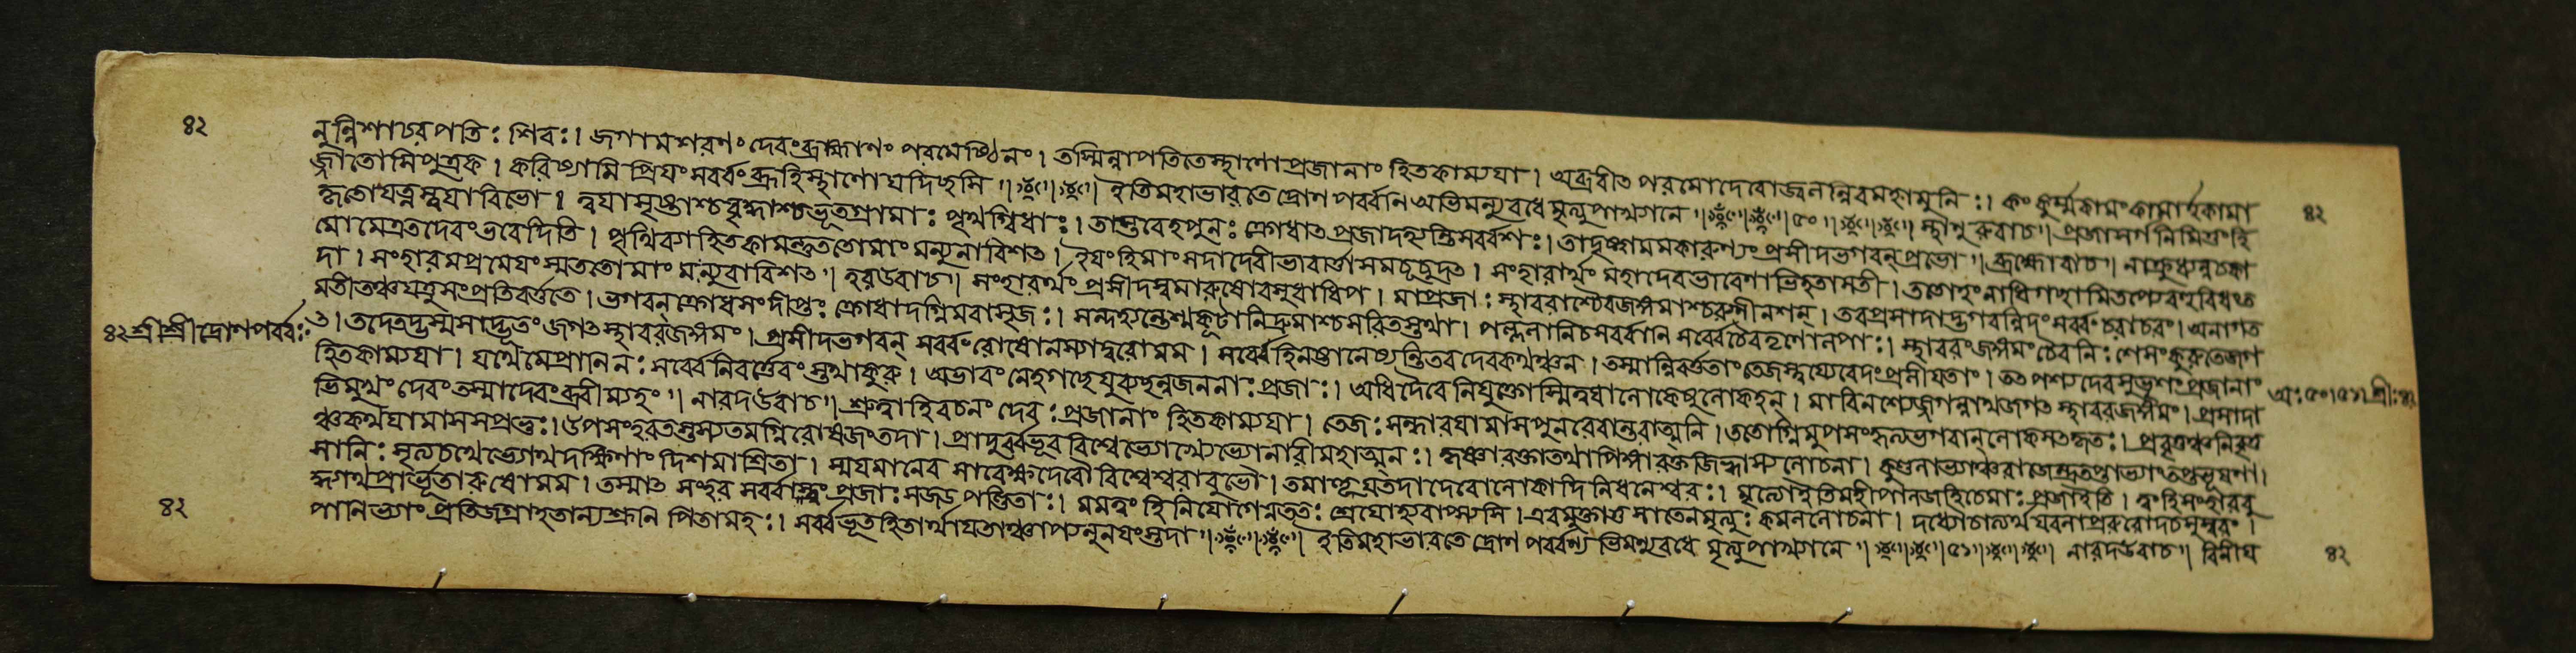 ৪২
নুন্নিশাচরপতিঃ শিবঃ। জগামশরণং দেবংব্রহ্মাণং পরমেষ্ঠিনং। তস্মিন্নাপতিতেস্থাণৌপ্রজানাং হিতকাম্যযা। অব্রবীত পরমোদেবোজ্বলন্নিবমহামুনিঃ। কং কুর্ম্মকামংকামার্হকামা
জ্জাতোসিপুত্রক। করিষ্যামি প্রিযং সর্ব্বংব্রূহিস্থাণোযদিচ্ছসি॥ ইতিমহাভারতে দ্রোণপর্ব্বনি অভিমন্যুবধে মৃত্যুপাখ্যানে॥ ৫০॥ স্থাণুরুবাচ॥ প্রজাসর্গনিমিত্তংহি
৪২
কৃতোযত্নস্ত্বযাবিভো। ত্বযাসৃষ্টাশ্চবৃদ্ধাশ্চভূতগ্রামাঃ পৃথগ্বিধাঃ। তাস্তবেহপুনঃ ক্রোধাত প্রজাদহ্যন্তিসর্ব্বশঃ। তাদৃষ্ট্বামমকারুণ্যং প্রসীদভগবন্প্রভো॥ ব্রহ্মোবাচ॥ নক্রুধ্যেনচকা
মোমেত্রতদেবংভবেদিতি। পৃথিব্যাহিতকামন্তুততোমাং মন্যুনাবিশত। ইযংহিমাং সদাদেবীভাবার্ত্তাসমচূচুদত। সংহারার্থং মহাদেবভাবেণাভিহতাসতী। ততোহংনাধিগচ্ছামিতপ্যেবহুবিধংত
দা। সংহারমপ্রমেযংস্মততোমাং মন্যুরাবিশত॥ হরউবাচ॥ সংহারর্থং প্রসীদস্বমারুষোবসুধাধিপ। মাপ্রজাঃ স্থাবরাশ্চৈবজঙ্গমাশ্চরুসীনশন্। তবপ্রসাদাদ্ভগবন্নিদংসর্ব্বংচরাচরং। অনাগত
মতীতঞ্চযচ্চসংপ্রতিবর্ত্ততে। ভগবন্ক্রোধসংদীপ্তঃ ক্রোধাদগ্নিমবাসৃজঃ। সন্দহন্তেশ্মকূটানিদ্রুমাশ্চসরিতস্তথা। পল্বলানিচসর্ব্বানি সর্ব্বেচৈবতৃণোলপাঃ। স্থাবরংজঙ্গমংচৈবনিঃশেষংকুরুতেজগ
৪২ শ্রীশ্রীদ্রোণপর্ব্বঃ
ত। তদেত্রদ্ভস্মসাদ্ভূতং জগত স্থাবরজঙ্গমং। প্রসীদভগবন্ সর্ব্বংরোষোনস্যাদ্বরোমম। সর্ব্বেহিনষ্টানেষ্যন্তিতবদেবকথঞ্চন। তস্মান্নিবর্ত্ততাংতেজস্ত্বয্যেবেদংপ্রলীযতাং। ততপশ্যদেবসুভৃশংপ্রজানাং
হিতকাম্যযা। যথেমেপ্রানিনঃ সর্ব্বেনিবর্ত্তেরংস্তথাকুরু। অভাবংনেহগচ্ছেযুরুচ্ছন্নজননাঃপ্রজাঃ। অধিদৈবেনিযুক্তোস্মিত্বযালোকেষুলোকহন্। মাবিনশ্যেজ্জগন্নাথজগত স্থাবরজঙ্গমং। প্রসাদা
অঃ ৫০।৫১। শ্রীঃ ৪২
ভিমুখং দেবং তস্মাদেবংব্রবীম্যহং॥ নারদউবাচ॥ শ্রুত্বাহিবচনং দেবঃ প্রজানাং হিতকাম্যযা। তেজঃ সন্ধারযামাসপুনরেবান্তরাত্মনি। ততোগ্নিমুপসংহৃত্যভগবান্লোকসতকৃতঃ। প্রবৃত্তঞ্চনিবৃত্ত
ঞ্চকল্পযামাসসপ্রভুঃ। উপসংহরতস্তস্যতমগ্নিরোষজংতদা। প্রাদুর্ব্বভূব বিশ্বেভ্যোখ্যেভ্যোনারীমহাত্মনঃ। কৃষ্ণারক্তাতথাপিঙ্গারক্তজিহ্বাস্যলোচনা। কুণ্ডলাভ্যাঞ্চরাজেন্দ্রতপ্তাভ্যাংতপ্তভূষণা।
সানিঃ সৃত্যচখেভ্যোথদক্ষিণাং দিশমাশ্রিতা। স্মযমানেব সাবেক্ষ্যদেবৌ বিশ্বেশ্বরাবুভৌ। তমাহূযতদাদেবোলোকাদি নিধনেশ্বরঃ। মৃত্যোইতিমহীপালজহিচেমাঃ প্রজাইতি। ত্বংহিসংহারবু
দ্ধ্যাথপ্রার্ভূতারুষোমম। তস্মাত সংহর সর্ব্বাস্ত্বং প্রজাঃ সজড়পণ্ডিতাঃ। মমত্বং হি নিযোগেনততঃ শ্রেযোহ্যবাপ্স্যসি। এবমুক্তাতু সাতেনমৃত্যুঃ কমললোচনা। দধ্যৌচাত্যর্থমবলাপ্ররুরোদচসুস্বরং।
৪২
পাণিভ্যাং প্রতিজগ্রাহতান্যশ্রূনি পিতামহঃ। সর্ব্বভূতহিতার্থাযতাঞ্চাপ্যনুনযংস্তদা॥ ইতিমহাভারতে দ্রোণ পর্ব্বণ্যভিমন্যুবধে মৃত্যুপাখ্যানে॥ ৫১॥ নারদউবাচ॥ বিনীয
৪২